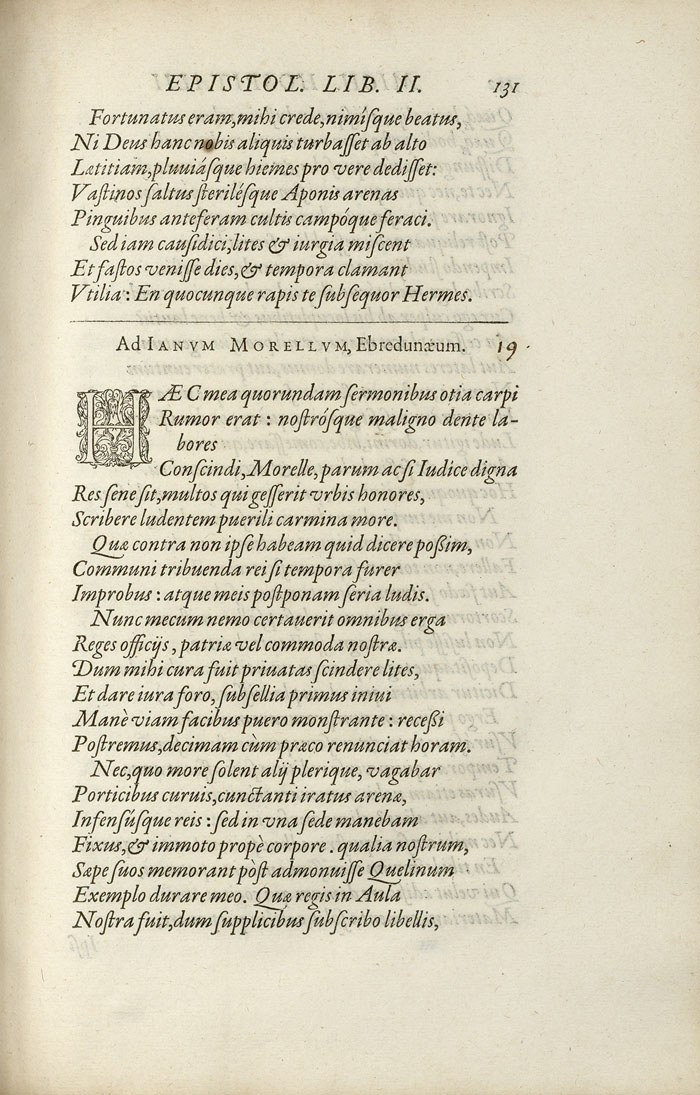 EPISTOL. LIB. II. 131
Fortunatus eram, mihi crede, nimísque beatus,
Ni Deus hanc nobis aliquis turbaſſet ab alto
Lætitiam, pluuiáſque hiemes pro vere dediſſet:
Vaſtinos ſaltus ſteriléſque Aponis arenas
Pinguibus anteferam cultis campóque feraci.
Sed iam cauſidici, lites & iurgia miſcent
Et faſtos veniſſe dies, & tempora clamant
Vtilia: En quocunque rapis te ſubſequor Hermes.
Ad IANVM MORELLVM, Ebredunæum. 19.
HÆC mea quorundam ſermonibus otia carpi
Rumor erat: noſtróſque maligno dente la-
bores
Conſcindi, Morelle, parum ac ſi Iudice digna
Res ſene ſit, multos qui geſſerit vrbis honores,
Scribere ludentem puerili carmina more.
Quæ contra non ipſe habeam quid dicere poßim,
Communi tribuenda rei ſi tempora furer
Improbus: atque meis poſtponam ſeria ludis.
Nunc mecum nemo certauerit omnibus erga
Reges officijs, patriæ vel commoda noſtræ.
Dum mihi cura fuit priuatas ſcindere lites,
Et dare iura foro, ſubſellia primus iniui
Manè viam facibus puero monſtrante: receßi
Poſtremus, decimam cùm præco renunciat horam.
Nec, quo more ſolent alij plerique, vagabar
Porticibus curuis, cunctanti iratus arenæ,
Infenſúſque reis: ſed in vna ſede manebam
Fixus, & immoto propè corpore. qualia noſtrum,
Sæpe ſuos memorant pòſt admonuiſſe Quelinum
Exemplo durare meo. Quæ regis in Aula
Noſtra fuit, dum ſupplicibus ſubſcribo libellis,